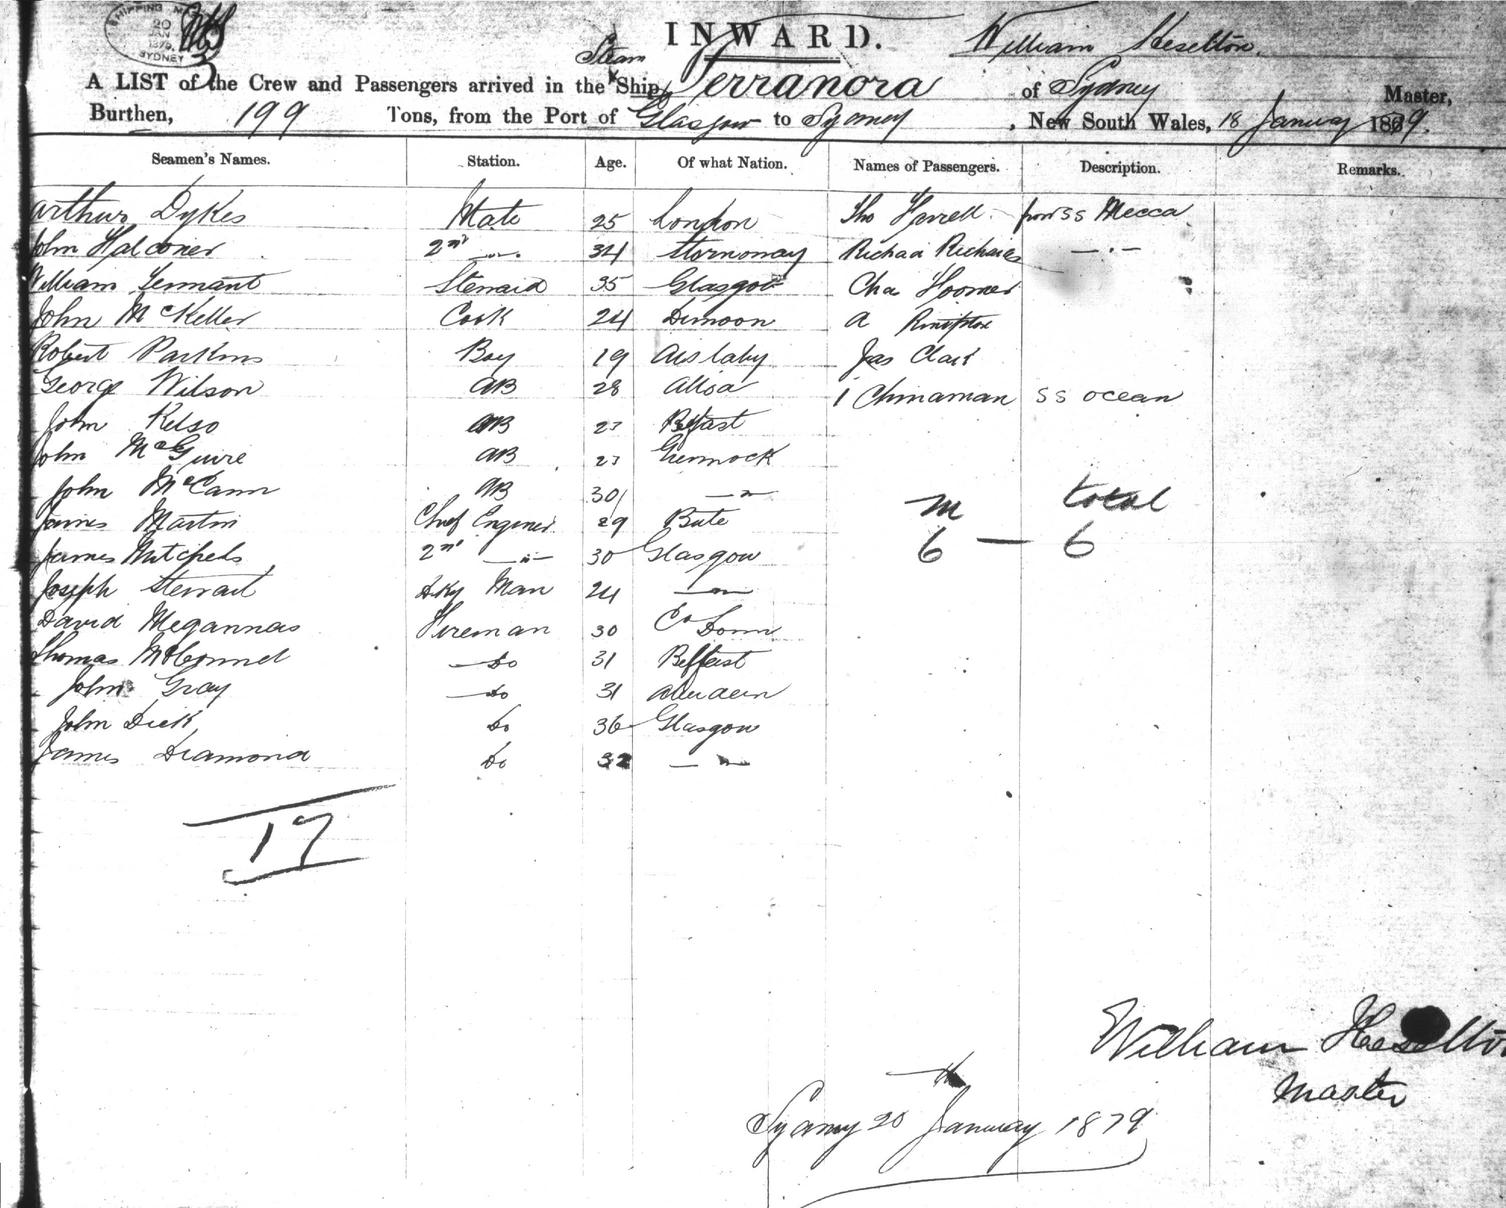 SHIPPING M
20
JAN
1879
SYDNEY
INWARD.
William Heselton.
Steam
A LIST of the Crew and Passengers arrived in the Ship Terranora of Sydney Master,
Burthen, 199 Tons, from the Port of Glasgow to Sydney, New South Wales, 18 January 1879.
Seamen's Names. Station. Age. Of what Nation. Names of Passengers. Description. Remarks.
Arthur Dykes Mate 25 London Tho Farrell from SS Mecca
John Falconer 2nd —"— 34 Stornoway Richard Richards —"—
William Tennant Steward 35 Glasgow Chas
John McKeller Cook 24 Dunoon A
Robert Parkins Boy 19 Aislaby Jas Clark
George Wilson AB 28 Alloa 1 Chinaman SS Ocean
John Kelso AB 27 Belfast
John McGuire AB 27 Greenock
John McCann AB 30 —"—
James Martin Chief Engineer 29 Bute
James Mitchell 2nd —"— 30 Glasgow
Joseph Stewart Dky Man 24 —"—
David Megannas Fireman 30 Co Down
Thomas McConnel —Do 31 Belfast
John Gray —Do 31 Aberdeen
John Dick Do 36 Glasgow
James Diamond Do 32 —"—
M total
6 — 6
17
William Heselton
Master
Sydney 20th January 1879